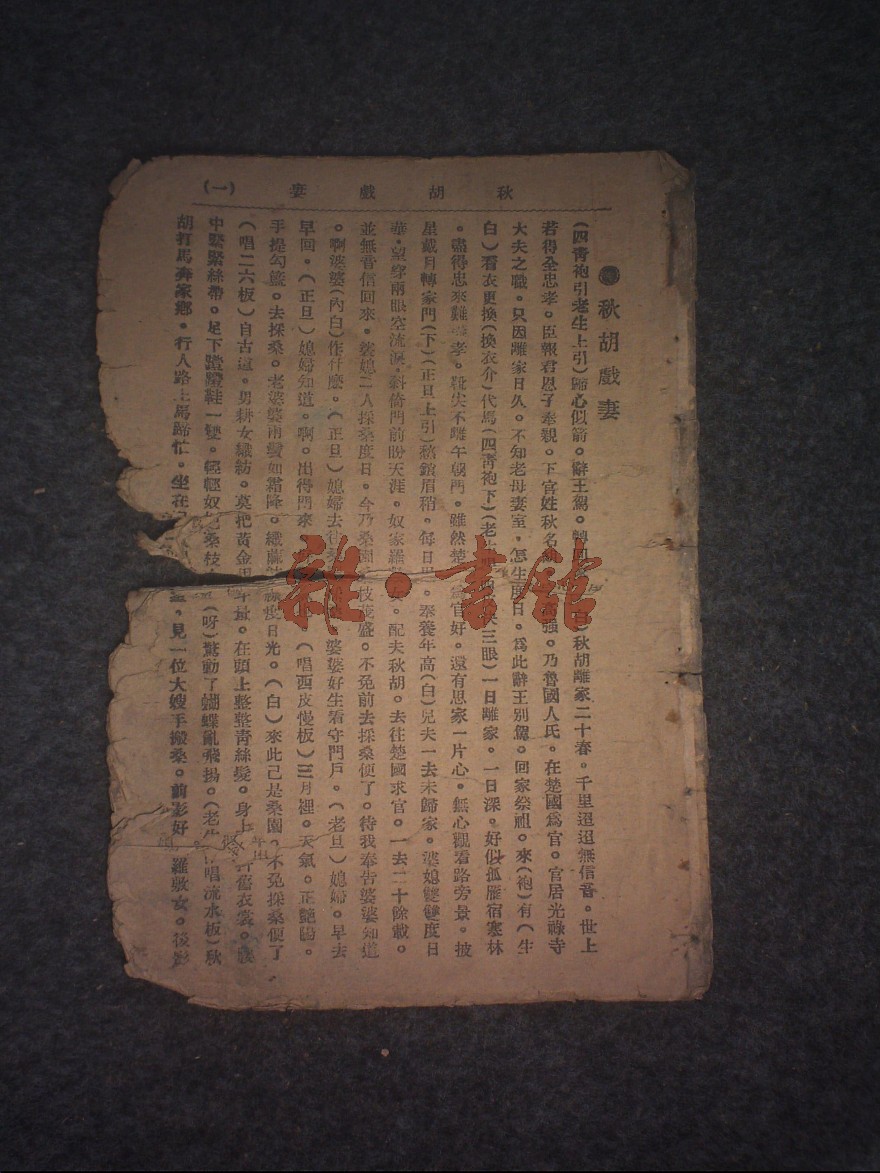 秋胡戲妻 (一)
秋胡戲妻
(四青袍引老生上引)歸心似箭。辭王駕。轉回 白)秋胡離家二十春。千里迢迢無信音。世上
若得全忠孝。臣報君恩子奉親。下官姓秋名胡 強。乃魯國人氏。在楚國爲官。官居光祿寺
大夫之職。只因離家日久。不知老母妻室。怎生度日。爲此辭王別駕。回家祭祖。來(袍)有(生
白)看衣更換(換衣介)代馬(四青袍下)(老生 三眼)一日離家。一日深。好似孤雁宿寒林
。盡得忠來難盡孝。靴尖不離午朝門。雖然楚 爲官好。還有思家一片心。無心觀看路旁景。披
星戴月轉家門(下)(正旦上引)愁鎖眉稍。每日里。奉養年高(白)兒夫一去未歸家。婆媳雙雙度日
華。望穿兩眼空流淚。斜倚門前盼天涯。奴家羅敷女。配夫秋胡。去往楚國求官。一去二十餘載。
並無音信回來。婆媳二人採桑度日。今乃桑園 枝茂盛。不免前去採桑便了。待我奉告婆婆知道
。啊婆婆(內白)作什麼。(正旦)媳婦去往桑 婆婆好生看守門戶。(老旦)媳婦。早去
早回。(正旦)媳婦知道。啊。出得門來 (唱西皮慢板)三月裡。天氣。正艷陽。
手提勾籃。去採桑。老婆婆兩鬢如霜降。織蔴 線度日光。(白)來此已是桑園。不免採桑便了
(唱二六板)自古道。男耕女織紡。莫把黃金 斗量。在頭上整整青絲髮。身上 舊衣裳。
中緊緊絲帶。足下蹬蹬鞋一雙。輕輕奴 桑枝 (呀)驚動了蝴蝶亂飛揚。(老生 唱流水板)秋
胡打馬奔家鄉。行人路上馬蹄忙。坐在 見一位大嫂手搬桑。前影好 羅敷女。後影
雜·書館